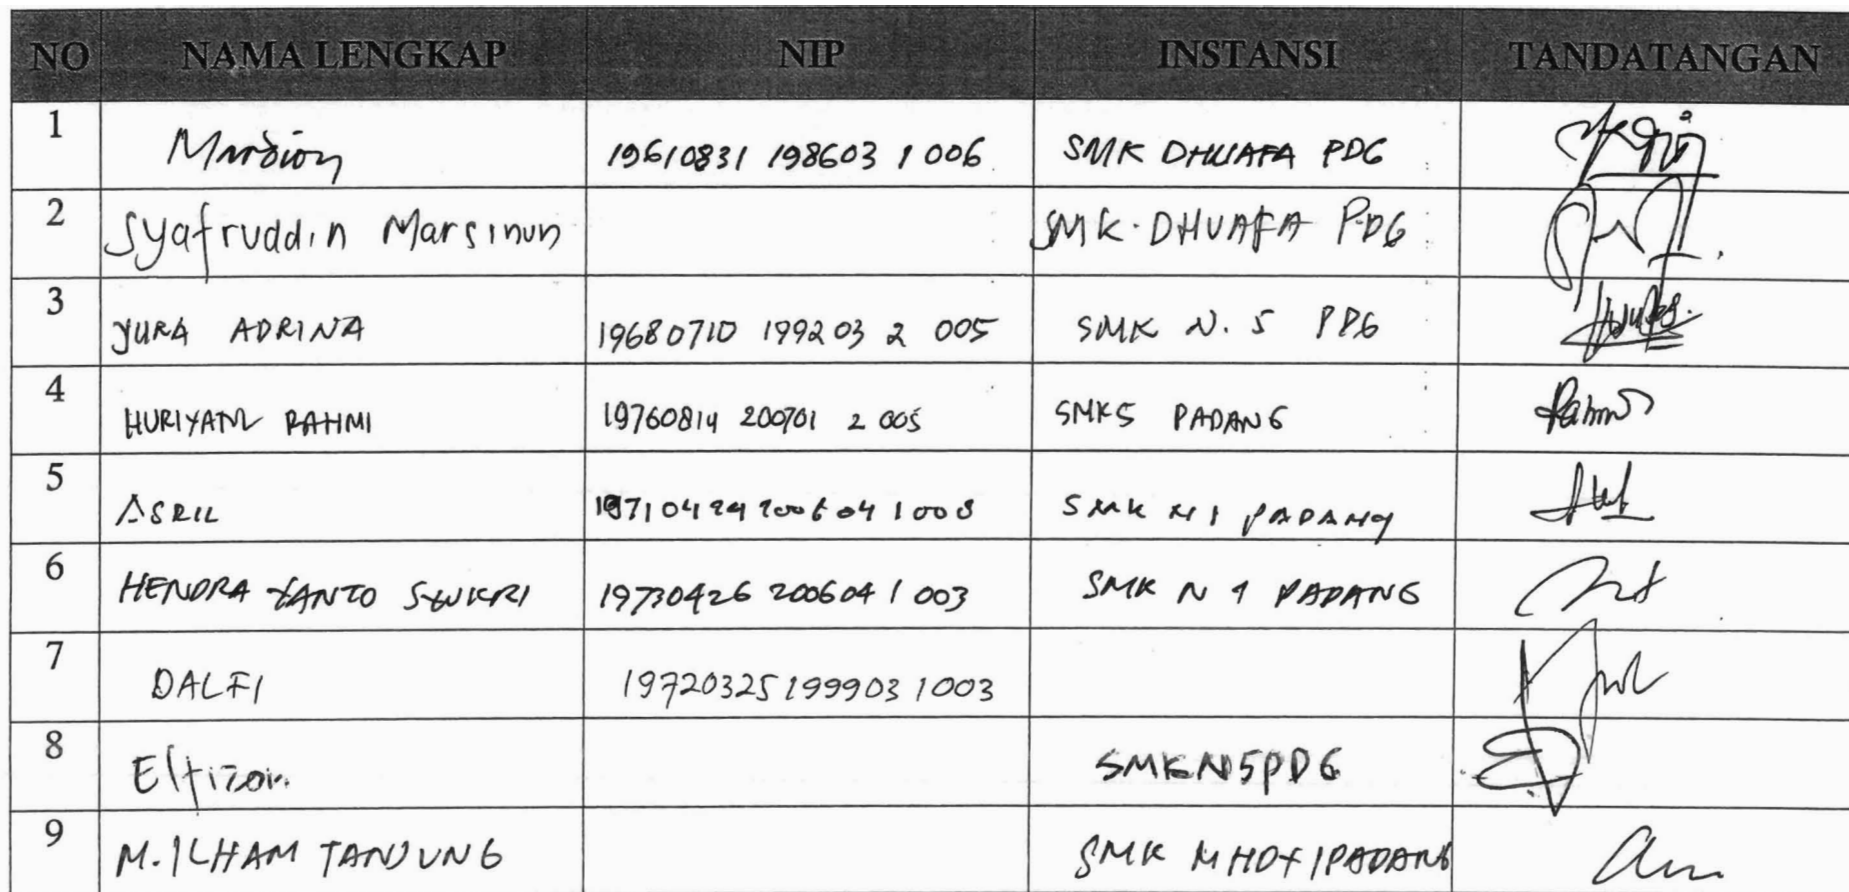 NO NAMA LENGKAP NIP INSTANSI TANDATANGAN
1 19610831 198603 1 006 SMK DHUAFA PDG
2 Syafruddin Marsinun SMK. DHUAFA PDG
3 YURA ADRINA 19680710 199203 2 005 SMK N. 5 PDG
4 RAHMI 19760814 200701 2 005 SMK5 PADANG
5 ASRIL SMK N 1 PADANG
6 HENDRA YANTO SYUKRI 19730426 200604 1 003 SMK N 1 PADANG
7 DALFI 19720325 199903 1003
8 Elfizon SMKN5PDG
9 M. ILHAM TANJUNG SMK